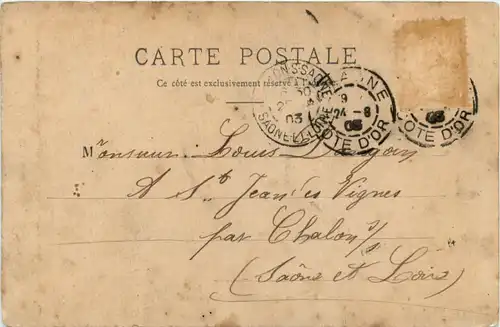 CARTE POSTALE
Ce côté est exclusivement réservé
24 -8
03
COTE D'OR
03
SAONE-ET-LOIRE
03
COTE D'OR
Monsieur Louis
A St Jean des Vignes
par Chalon s/s
(Saône et Loire)